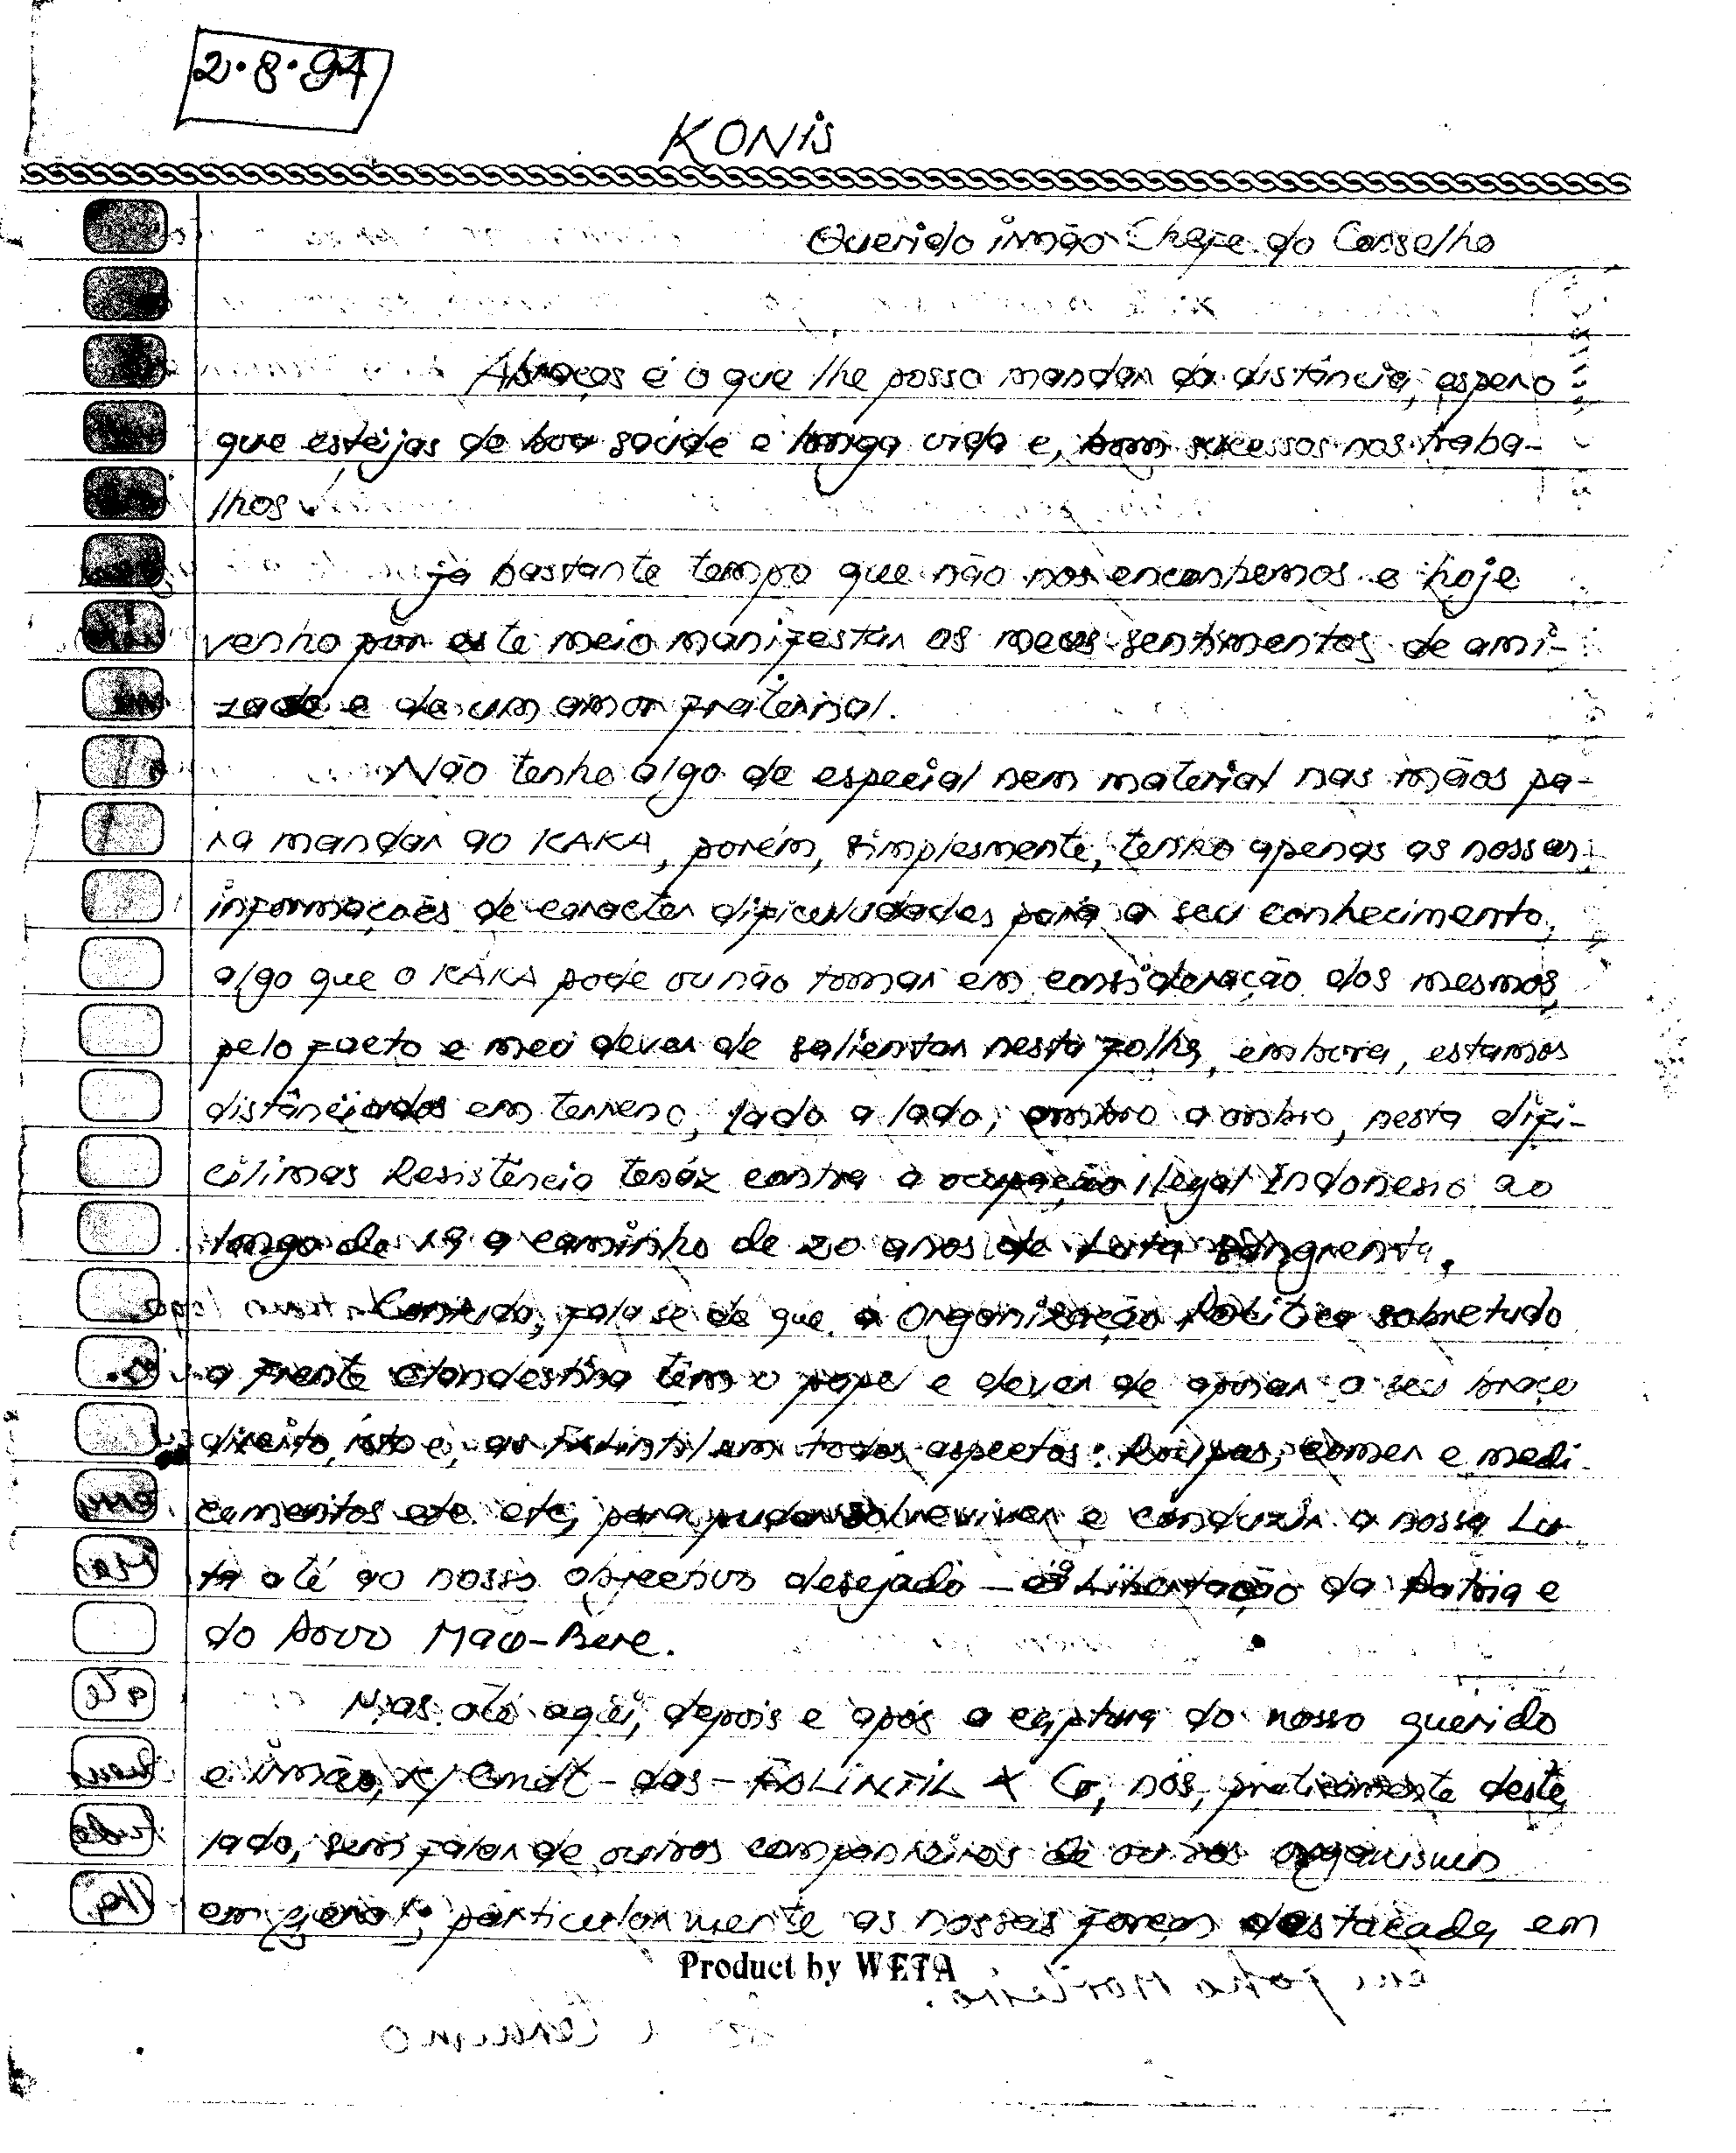 2.8.94
KONIS
Querido irmão Chefe do Conselho
Abraços é o que lhe posso mandar da distância, espero
que estejas de boa saúde e longa vida e, bom sucessos nos traba-
lhos.
já bastante tempo que não nos encontremos e hoje
venho por este meio manifestar os meus sentimentos de ami-
zade e de um amor fraternal.
Não tenho algo de especial nem material nas mãos pa-
ra mandar ao KAKA, porém, simplesmente, tenho apenas as nossas
informações de caracter dificuldades para o seu conhecimento,
algo que o KAKA pode ou não tomar em consideração dos mesmos,
pelo facto e meu dever de salientar nesta folha, embora, estamos
distânciados em terreno, lado a lado, ombro a ombro, nesta difi-
cílimas Resistência tenáz contra a ocupação ilegal Indonesio ao
longo de 19 a caminho de 20 anos de Luta sangrenta.
Contudo, fala se de que a Organização Politica sobretudo
a Frente clandestina tem o papel e dever de apoiar o seu braço
direito, isto é, as Falintil em todos aspectos: Roupas, comer e medi-
camentos etc. etc, para puder sobreviver e conduzir a nossa Lu-
ta até ao nosso objectivo desejado - a Libertação da Patria e
do Povo Mau-Bere.
Mas até aqui, depois e após a captura do nosso querido
e irmão, Cmdt - das - FALINTIL X G, nós, praticamente deste
lado, sem falar de outros companheiros de outros organismos
em geral; particularmente as nossas forças destacada, em
Product by WETA